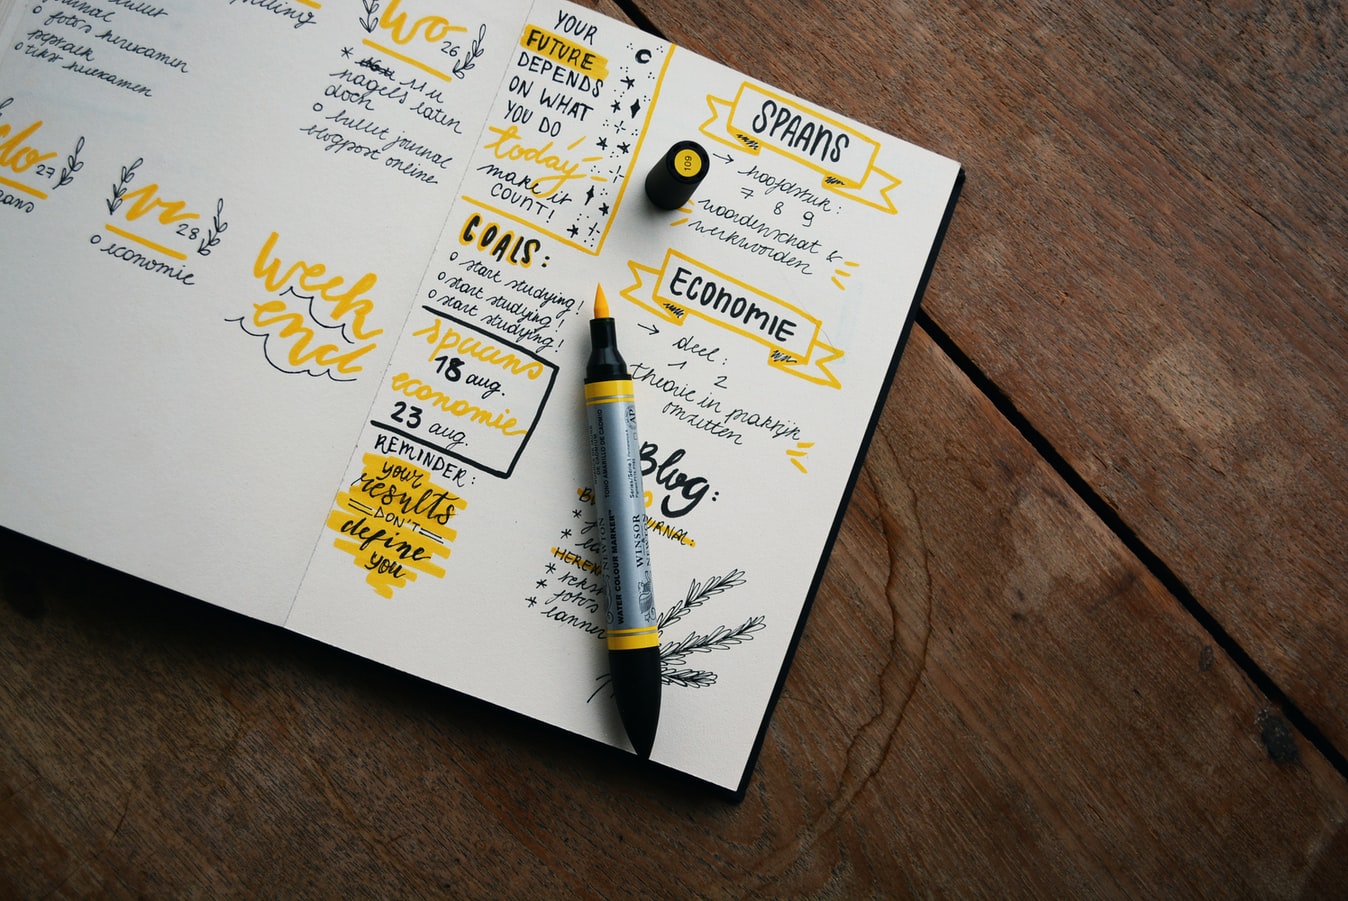 bullet
journal
o foto's herexamen
peptalk
o tekst herexamen
wo 26
* 11 u
nagels laten
doen
o bullet journal
blogpost online
do 27
vr 28
o economie
week
end
YOUR
FUTURE
DEPENDS
ON WHAT
YOU DO
today
make it
COUNT!
GOALS:
o start studying!
o start studying!
o start studying!
spaans
18 aug.
economie
23 aug.
REMINDER:
your
results
DON'T
define
you
SPAANS
→ hoofdstuk:
7 8 9
woordenschat &
werkwoorden
ECONOMIE
→ deel:
1 2
theorie in praktijk
omzetten
Blog:
* tekst
* foto's
* banner
109
WATER COLOUR MARKER™
WINSOR
NEWTON